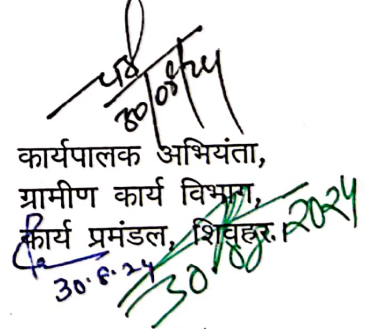 30/08/24
कार्यपालक अभियंता,
ग्रामीण कार्य विभाग,
कार्य प्रमंडल, शिवहर।
30.8.24
30.08.2024